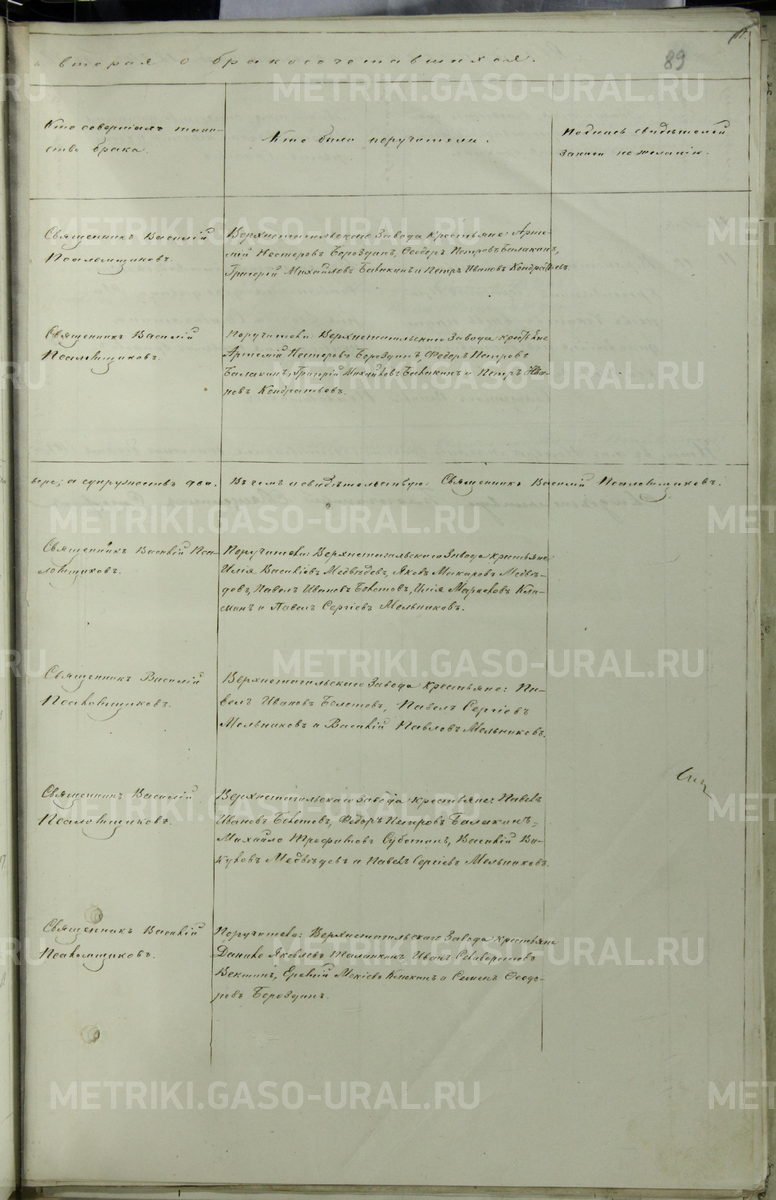 вторая о бракосочетавшихся.
89
Кто совершалъ таин-
ство брака.
Кто были поручатели.
Подпись свидѣтелей
записи по желанію.
Священникъ Василій
Псаломщиковъ.
Верхнетагильскаго Завода крестьяне: Арте-
мій Нестеровъ Бороздинъ, Ѳеодоръ Петровъ Балакинъ,
Григорій Михайловъ Бабкинъ и Петръ Ивановъ Кондратьевъ.
Священникъ Василій
Псаломщиковъ.
Поручатели Верхнетагильскаго Завода крестьяне
Артемій Нестеровъ Бороздинъ, Федоръ Петровъ
Балакинъ, Григорій Михайловъ и Петръ Ива-
новъ Кондратьевъ.
а супружествъ два.
Въ чемъ и свидѣтельствую Священникъ Василій Псаломщиковъ.
Священникъ Василій Пса-
ломщиковъ.
Поручатели: Верхнетагильскаго Завода крестьяне
Илья Васильевъ Медвѣдевъ, Яковъ Макаровъ Медвѣ-
девъ, Павелъ Ивановъ Болотовъ, Илія Марковъ
и Павелъ Сергіевъ Мельниковъ.
Священникъ Василій
Псаломщиковъ.
Верхнетагильскаго Завода крестьяне: Па-
велъ Ивановъ Болотовъ, Павелъ Сергіевъ
Мельниковъ и Василій Павловъ Мельниковъ.
Священникъ Василій
Псаломщиковъ.
Верхнетагильскаго Завода крестьяне: Павелъ
Ивановъ Болотовъ, Федоръ Петровъ Балакинъ,
Михайло Трофимовъ Субботинъ, Василій Ва-
куловъ Медвѣдевъ и Павелъ Сергіевъ Мельниковъ.
Священникъ Василій
Псаломщиковъ.
Поручатели: Верхнетагильскаго Завода крестьяне
Данило Яковлевъ Иванъ
и Семенъ Ѳеодо-
ровъ Бороздинъ.
METRIKI.GASO-URAL.RU